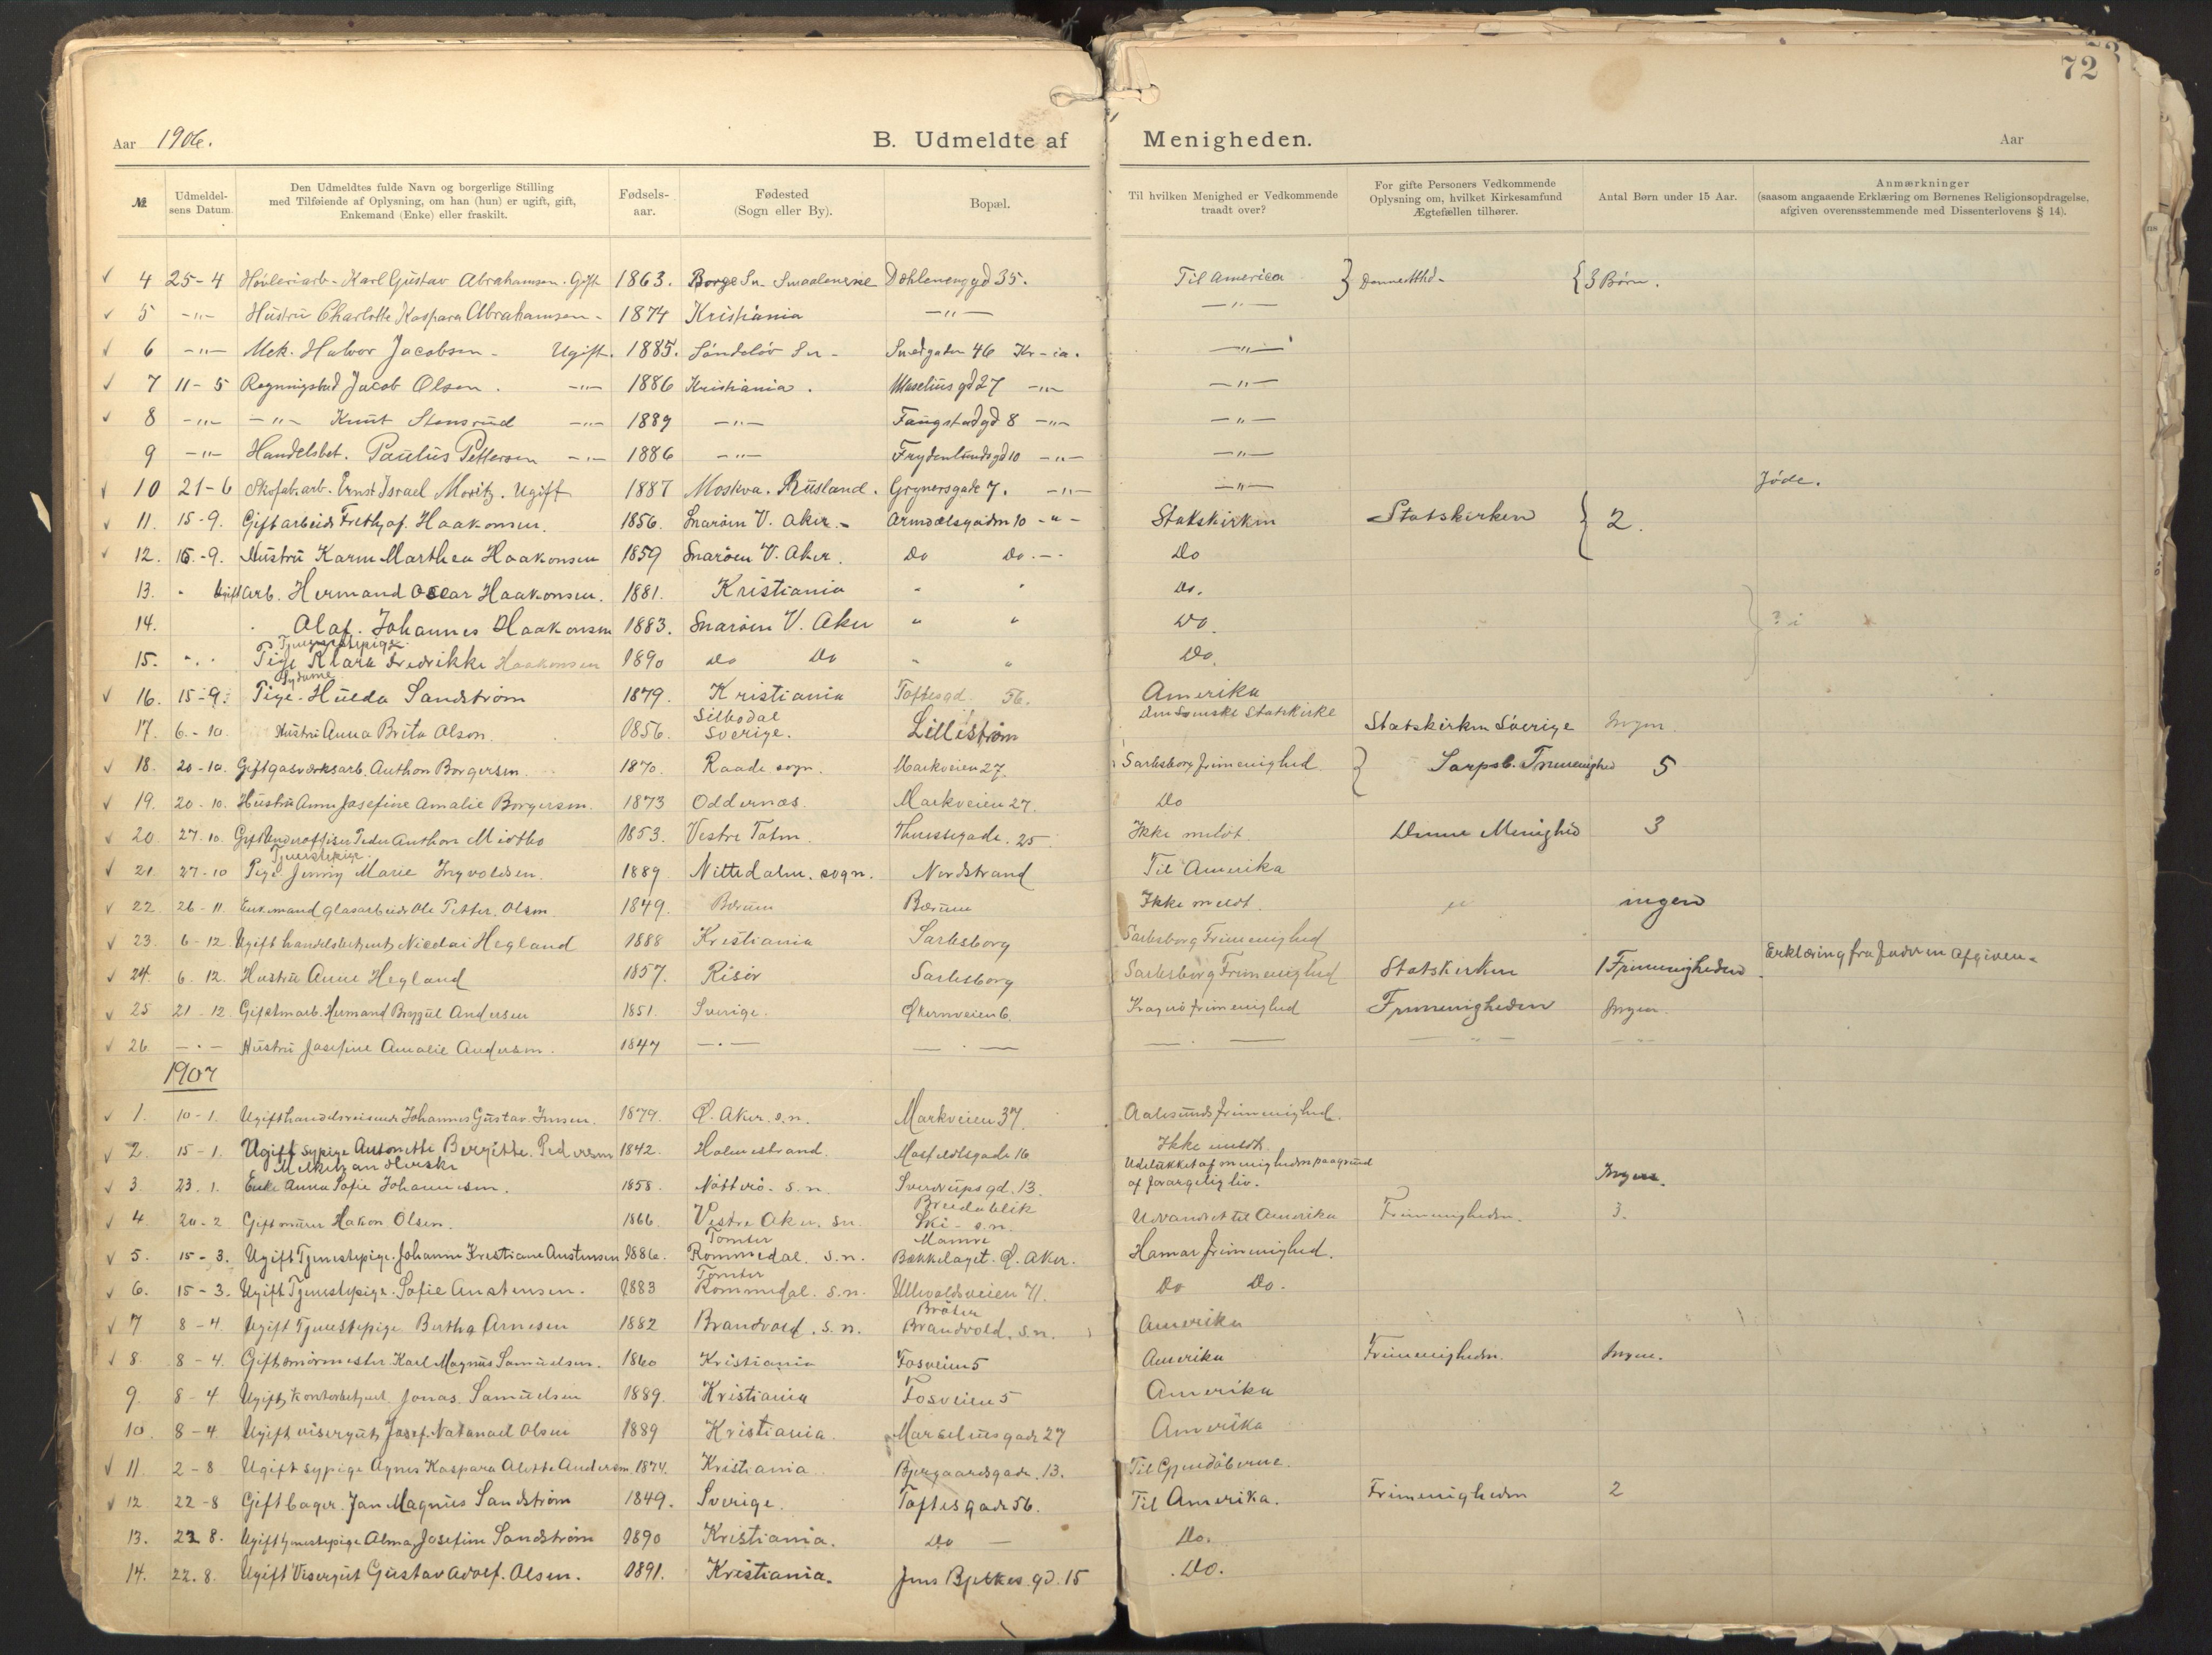 72
Aar 1906.
B. Udmeldte af Menigheden.
Aar
№ Udmeldelsens Datum. Den Udmeldtes fulde Navn og borgerlige Stilling med Tilføiende af Oplysning, om han (hun) er ugift, gift, Enkemand (Enke) eller fraskilt. Fødselsaar. Fødested (Sogn eller By). Bopæl. Til hvilken Menighed er Vedkommende traadt over? For gifte Personers Vedkommende Oplysning om, hvilket Kirkesamfund Ægtefællen tilhører. Antal Børn under 15 Aar. Anmærkninger (saasom angaaende Erklæring om Børnenes Religionsopdragelse, afgiven overensstemmende med Dissenterlovens § 14).
4 25-4 Høvleriarb. Karl Gustav Abrahamsen. Gift 1863. Borge Sn. Smaalenene Dæhlenenggd 35. Til America } Denne Mhd. { 3 Børn.
5 -"- Hustru Charlotte Kaspara Abrahamsen 1874 Kristiania -"- -"-
6 -"- Mek. Halvor Jacobsen - Ugift. 1885. Søndeløv Sn - 46 Kr-ia. -"-
7 11-5 Regningsbud Jacob Olsen. -"- 1886 Kristiania. Maselius gd 27 -"- -"-
8 -"- -"- Knut Stensrud -"- 1889 -"- Faugstadgd 8 -"- -"-
9 -"- Handelsbet. Paulus Pettersen -"- 1886 -"- Frydenlundsgd 10 -"- -"-
10 21-6 Skofab.arb. Ernst Israel Moritz. Ugift 1887 Moskva. Rusland. Grynersgade 7. -"- -"- Jøde.
11. 15-9. Gift arbeid. Frethjof. Haakonsen. 1856. Snarøen V. Aker. - Armodalsgaden 10 -"- Statskirken Statskirken } 2.
12. 15-9. Hustru Karen Marthea Haakonsen 1859 Snarøen V. Aker. Do Do. -- Do
13. " Ugift arb. Hermand Oscar Haakonsen. 1881. Kristiania " " Do.
14. " Olaf. Johannes Haakonsen 1883. Snarøen V. Aker " " Do. ?
Tjenestepige
15. " . " Pige Klara Fredrikke Haakonsen 1890 Do Do " " Do.
Sydame
16. 15-9. Pige. Hulda Sandstrøm 1879. Kristiania Toftesgd. 56. Amerika
17. 6.-10. Hustru Anna Brita Olson. 1856. Silbodal Sverige. Lillestrøm Den Svenske Statskirke Statskirken Sverige Ingen
18. 20-10. Gift gasværksarb. Anthon Borgersen. 1870. Raade sogn. Markveien 27. Sarpsborg frimenighed. } Sarpsb. Frimenighed 5
19. 20-10. Hustru Anne Josefine Amalie Borgersen. 1873 Oddernæs. Markveien 27. Do
20 27.10. Gift Underoffiser Peder Anthon Mjøtbo 1853. Vestre Toten Thuresegade. 25 Ikke meldt. Denne Menighed 3
Tjenestepige
21. 27-10 Pige Jenny Marie Ingvoldsen. 1889. Nittedalen. sogn. Nordstrand Til Amerika
22. 26-11 Enkemand glasarbeider Ole Petter. Olsen 1849. Bærum Bærum Ikke meldt. ingen
23. 6-12. Ugift handelsbetjent, Nicolai Hegland 1888 Kristiania Sarpsborg Sarpsborg Frimenighed
24. 6. 12. Hustru Anne Hegland 1857. Risør Sarpsborg Sarpsborg Frimenighed Statskirken 1 Frimenigheden Erklæring fra Faderen afgiven.
25 21-12. Gift tm.arb. Hermand Andersen 1851. Sverige. Økernveien 6. Kragerø frimenighed Frimenigheden Ingen.
26. -"- Hustru Josefine Amalie Andersen. 1847 -"- -"- -"- -"- -"-
1907
1. 10-1. Ugift handelsreisende Johannes Gustav. Jensen. 1879. Ø. Aker. s.n. Markveien 37. Aalesunds frimenighed.
2. 15-1. Ugift sypige Antonette Bergitte. Pedersen 1842. Holmestrand. Mosfeldtsgade 16 Ikke meldt.
Melkehandlerske
3. 23. 1. Enke Anna Sofie Johannesen. 1858. Nøtterø. s.n. Sverdrupsgd. 13. Udelukket af menigheden paagrund af forargelig liv. Ingen.
4. 20-2 Gift murer Hakon Olsen. 1866. Vestre Aker. sn. Breidablik Ski - s.n. Udvandret til Amerika Frimenigheden. 3.
5. 15-3. Ugift Tjenestepige. Johanne Kristiane Austensen 1886. Tomter Rommedal. s.n. Mamre Bækkelaget. Ø. Aker. Hamar frimenighed.
6. 15-3. Ugift Tjenestepige. Sofie Austensen. 1883 Tomter Rommedal. s.n. Ullevoldsveien 71. Do Do.
7 8-4. Ugift Tjenestepige Bertha Arnesen 1882 Brandvold. s.n. Bråten Brandvold, s.n. Amerika
8. 8-4. Gift Karl Magnus Samuelsen. 1860 Kristiania Fosveien 5 Amerika Frimenigheden. Ingen.
9. 8-4 Ugift, kontorbetjent Jonas. Samuelsen 1889. Kristiania Fosveien 5 Amerika
10. 8-4. Ugift visergut, Josef. Natanael Olsen 1889 Kristiania. Marselius gade 27 Amerika
11. 2-8 Ugift sypige Agnes Kaspara Alette Andersen 1874. Kristiania Bjergaardsgade. 13. Til Gjendøberne.
12. 22-8 Gift bager. Jan Magnus Sandstrøm 1849. Sverige. Toftesgade 56. Til Amerika. Frimenigheden 2
13. 22 8. Ugift tjenestepige Alma, Josefine Sandstrøm 1890 Kristiania. Do - Do.
14. 22.8. Ugift Visergut Gustav Adolf. Olsen. 1891. Kristiania. Jens Bjelkes gd. 15 . Do.